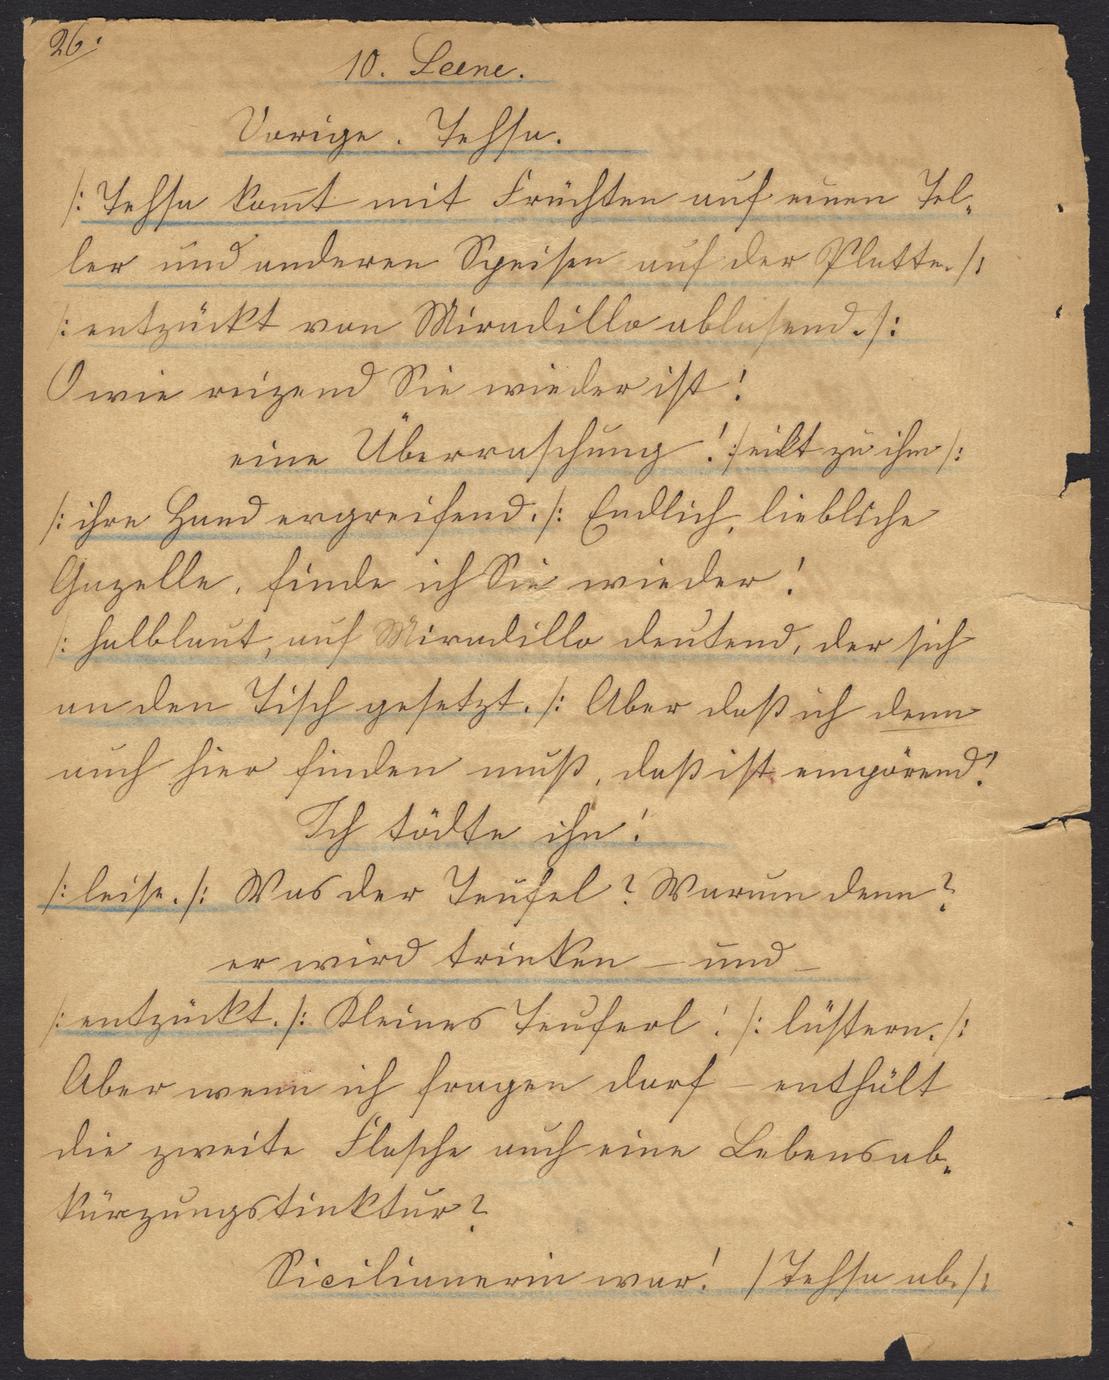 26.
10. Scene.
Vorige. Tessa.
/: Tessa kom̅t mit Früchten auf einen Tel-
ler und anderen Speisen auf der Platte. /:
/: entzückt von Miradillo ablasend. /:
O wie reizend Sie wieder ist!
eine Überraschung! /: eilt zu ihm /:
/: ihre Hand ergreifend. /: Endlich, lieblsche
Gazelle, finde ich Sie wieder!
/: halblaut, auf Miradillo deutend, der sich
an den Tisch gesetzt. /: Aber daß ich denn
auch hier finden muß, daß ist empörend!
Ich tödte ihn!
/: leise. /: Was der Teufel? Warum denn?
er wird trinken – und –
/: entzückt. /: Kleines Teuferl! /: lüstern. /:
Aber wenn ich fragen darf – enthält
die zweite Flasche auch eine Lebensab-
kürzungstinktur?
Sicilianerin war! / Tessa ab. /: